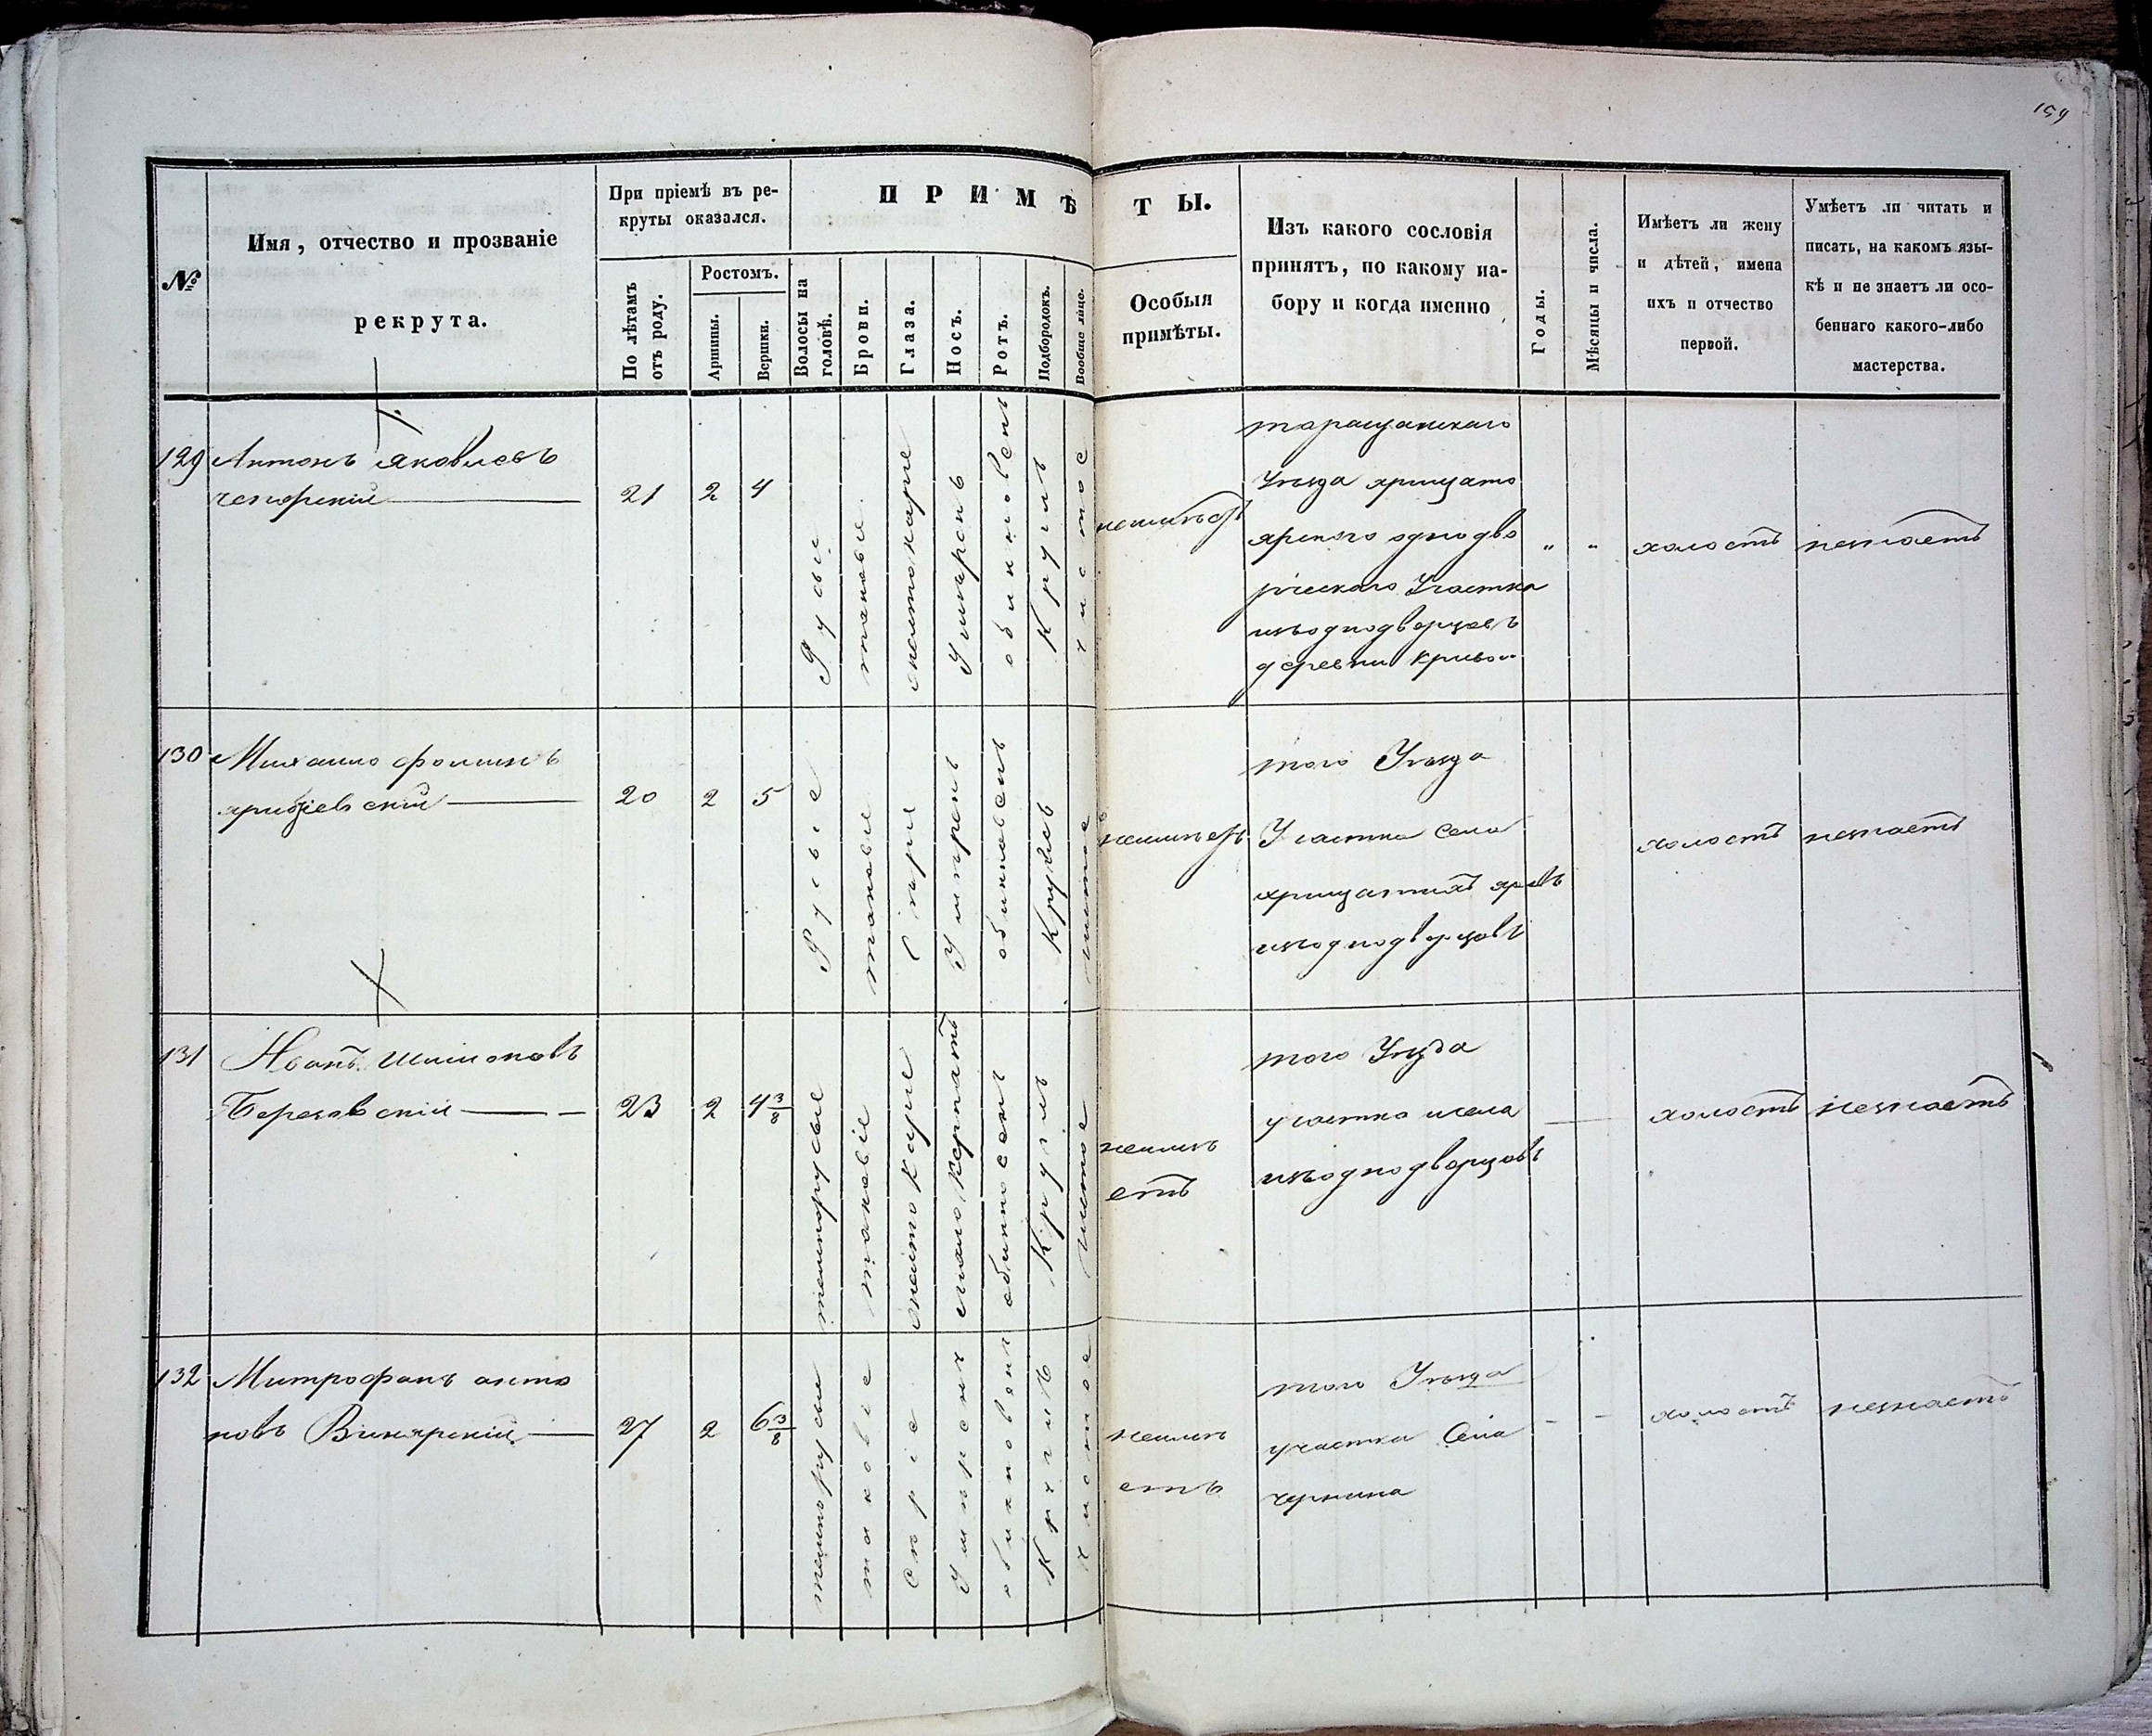 159
№
Имя, отчество и прозваніе
рекрута.
При пріемѣ въ ре-
круты оказался.
По лѣтамъ
отъ роду.
Ростомъ.
Аршины.
Вершки.
ПРИМѢТЫ.
Волосы на
головѣ.
Брови.
Глаза.
Носъ.
Ротъ.
Подбородокъ.
Вообще лице.
Особыя
примѣты.
Изъ какого сословія
принятъ, по какому на-
бору и когда именно
Годы.
Мѣсяцы и числа.
Имѣетъ ли жену
и дѣтей, имена
ихъ и отчество
первой.
Умѣетъ ли читать и
писать, на какомъ язы-
кѣ и не знаетъ ли осо-
беннаго какого-либо
мастерства.
129
Антонъ яковлевъ
21
2
4
Русые
таковые
желтокарые
Умѣренъ
обикновенъ
Круглъ
чистое
неимѣетъ
таращанскаго
Уѣзда хрищато
ярского однодво
рческаго Участка
изъоднодворцовъ
деревни Кривои
"
"
холостъ
незнаетъ
130
Михаило фоминъ
20
2
5
Русые
таковые
Сѣрые
Умѣренъ
обикновенъ
Круглъ
чистое
неимѣетъ
того Уѣзда
Участка Села
хрищатихъ яровъ
изъоднодворцовъ
холостъ
незнаетъ
131
Иванъ шимоновъ
Березовскій
23
2
4 3/8
темнорусые
таковіе
желтокарые
мало Керпатъ
обикновенъ
Круглъ
чистое
неимѣ
етъ
того Уѣзда
участка исела
изъоднодворцовъ
холостъ
незнаетъ
132
Митрофанъ анто
новъ Винярскій
27
2
6 3/8
темнорусые
таковіе
Сѣріе
Умѣренъ
обикновенъ
Круглъ
чистое
неимѣ
етъ
того Уѣзда
участка Села
чернина
холостъ
незнаетъ